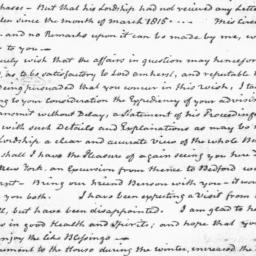 chases — But that his Lordship had not received any letter
den since the month of March 1815 — — This line
— and no Remarks upon it can be made by me, w
to you —
rely wish that the affairs in question may hencefor
, as to be satisfactory to Lord Amherst, and reputable
Being persuaded that you concur in this wish, I ta
ng to your consideration the Expediency of your advisin
ansmit without Delay, a Statement of his Proceedings
with such Details and Explanations as may be
Lordship a clear and accurate view of the whole Bus
shall I have the Pleasure of again seeing you here
New York, an Excursion from thence to Bedford wo
nt — Bring our friend Benson with you — it wo
you both. I have been expecting a Visit from
ll, but have been disappointed. I am glad to he
is in good Health and Spirits, and hope that you
enjoy the like Blessings —
nement to the House during the winter, encreased the